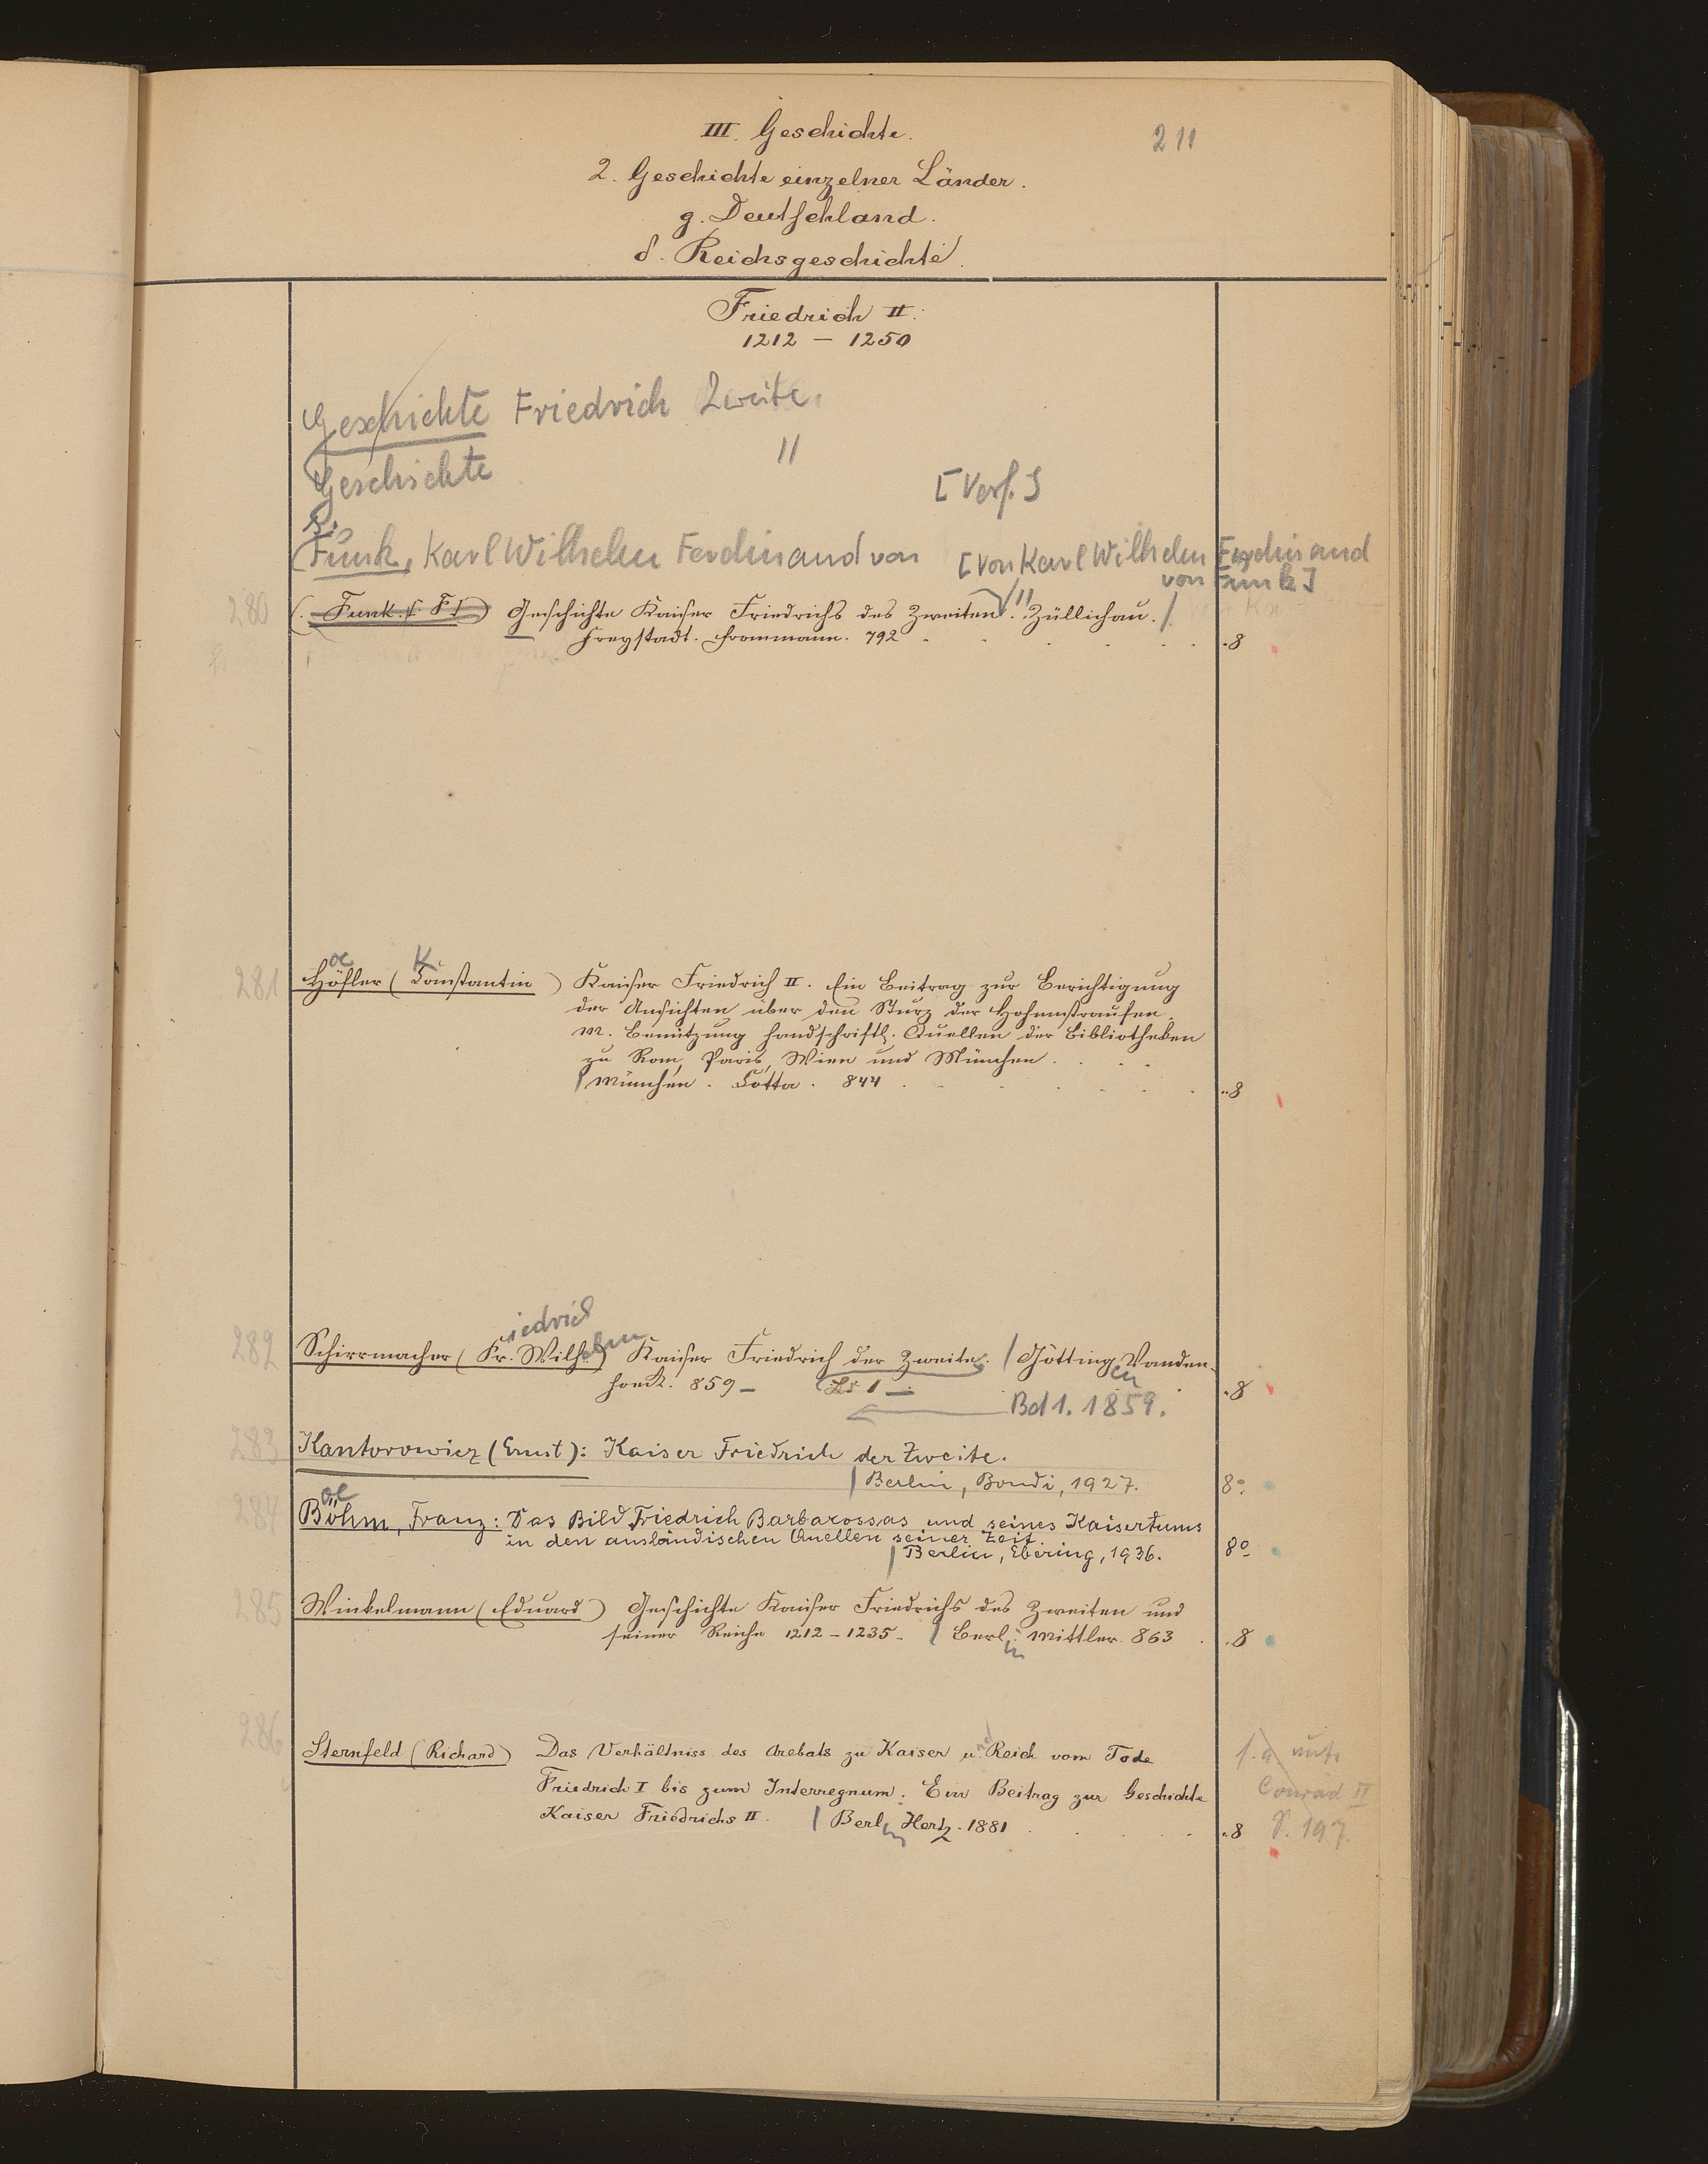 III. Geschichte.
211
2. Geschichte einzelner Länder.
g. Deutschland.
δ. Reichsgeschichte.
Friedrich II.
1212 – 1250
Geschichte Friedrich Zweite
Geschichte "
[Verf.]
Funk, Karl Wilhelm Ferdinand von [Von Karl Wilhelm Ferdinand
von Funk]
280 (Funk. F.) Geschichte Kaiser Friedrichs des Zweiten. Züllichau.
Freystadt. Frommann. 792 8
281 Höfler (Constantin) Kaiser Friedrich II. Ein Beitrag zur Berichtigung
oe K
der Ansichten über den Sturz der Hohenstaufen.
M. Benützung handschriftl. Quellen der Bibliotheken
zu Rom, Paris, Wien und München.
München. Cotta. 844 8
iedrich
282 Schirrmacher (Fr. Wilhelm) Kaiser Friedrich der Zweite. Göttingen Vanden-
hoeck. 859 – 1 – 8
Bd 1. 1859.
283 Kantorowicz (Ernst): Kaiser Friedrich der Zweite.
Berlin, Bondi, 1927. 8°
oe
284 Böhm, Franz: Das Bild Friedrich Barbarossas und seines Kaisertums
in den ausländischen Quellen seiner Zeit
Berlin, Ebering, 1936. 8°
285 Winkelmann (Eduard) Geschichte Kaiser Friedrichs des Zweiten und
seiner Reiche 1212 – 1235. Berlin Mittler. 863 8
286 Sternfeld (Richard) Das Verhältniss des Arelats zu Kaiser und Reich vom Tode
Friedrich I bis zum Interregnum. Ein Beitrag zur Geschichte
Kaiser Friedrichs II. Berlin Hertz. 1881 8
Conrad II
S. 197.